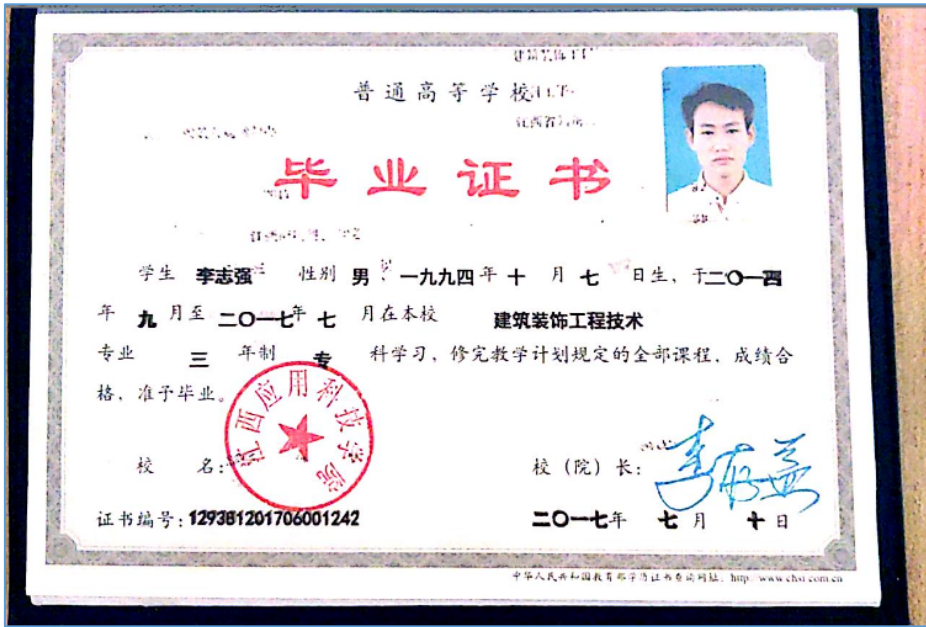 普通高等学校
毕业证书
学生 李志强 性别 男、一九九四年十月七日生、于二〇一四
年九月至二〇一七年七月在本校 建筑装饰工程技术
专业 三 年制 专 科学习，修完教学计划规定的全部课程，成绩合
格，准予毕业。
江西应用科技学院
校 名：
校（院）长：
证书编号：129381201706001242
二〇一七年 七月 十日
中华人民共和国教育部学历证书查询网址：http://www.chsi.com.cn